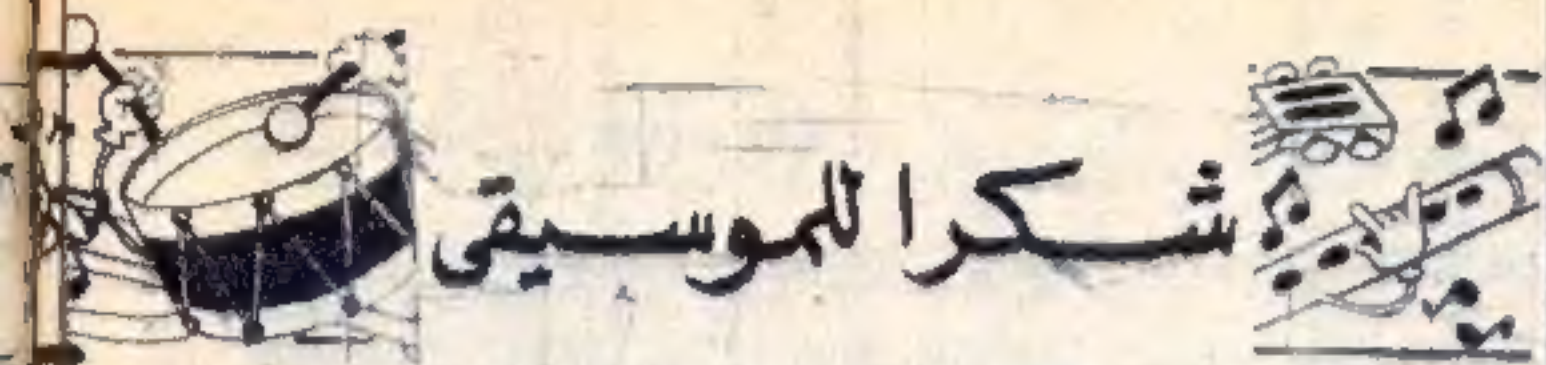 شكرا للموسيقى